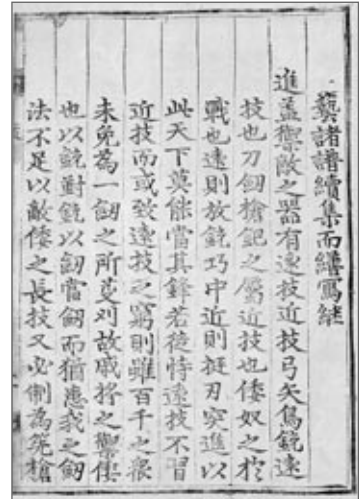 藝諸譜續集而繕寫
進盖禦敵之器有遠技近技弓矢鳥銃遠
技也刀劒槍鈀之屬近技也倭奴之於
戰也遠則放銃巧中近則挺刃突進以
此天下莫能當其鋒若徒恃遠技不習
近技而或致遠技之窮則雖百千之衆
未免為一劒之所芟刈故戚將之禦倭
也以銃對銃以劒當劒而猶患我之劒
法不足以敵倭之長技又必制為筅槍